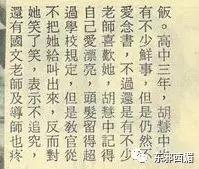 飯。高中三年，胡慧中
有不少鮮事，但是仍然很
愛念書，不過還是有不少
老師喜歡她，胡慧中記得
自己愛漂亮，頭髮留得超
過學校規定，但是教官從
不把她給叫出來，反而對
她笑了笑，表示不追究，
還有國文老師及導師也疼
东邪西媚